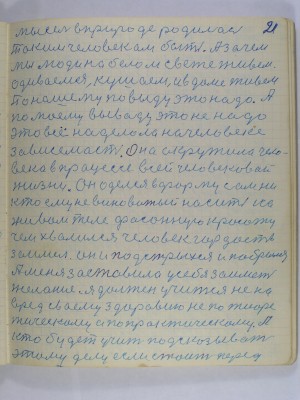 21
мыслю в природе родилас
таким человекам быть. А зачем
мы люди на белом свете живем.
одиваемся, кушаем, и в доме живем
По нашему повыду это надо. А
по моему вываду это не надо
это всё наделола на человеке
зависемасть. Она окружила чело-
века в працессе всей человеской
жизни. Он оделся в форму сам ни
кто ему не виноватый насить на
живом теле фасонную красоту
чем хвалился человек гардасть
заимел. он и подстрыхся и побрился
А меня заставила у себя заимет
желание. я должен учится не на
вред сваему здоровию не по теоре
тическому а по практическому. А
кто будет учит подсказыват
этому делу если стоит перед